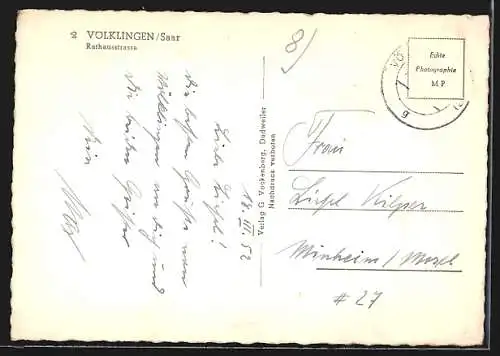 2 VÖLKLINGEN/Saar
Rathausstrasse
8)
Echte
Photographie
M P
VÖ
g
Verlag G Vockenberg, Dudweiler
Nachdruck verboten
14. III. 52
Liebe Liesel!
Die besten Grüsse von
Völklingen an Dich und
Dein
Frau
Liesel Kilper
Minheim / Mosel
# 27